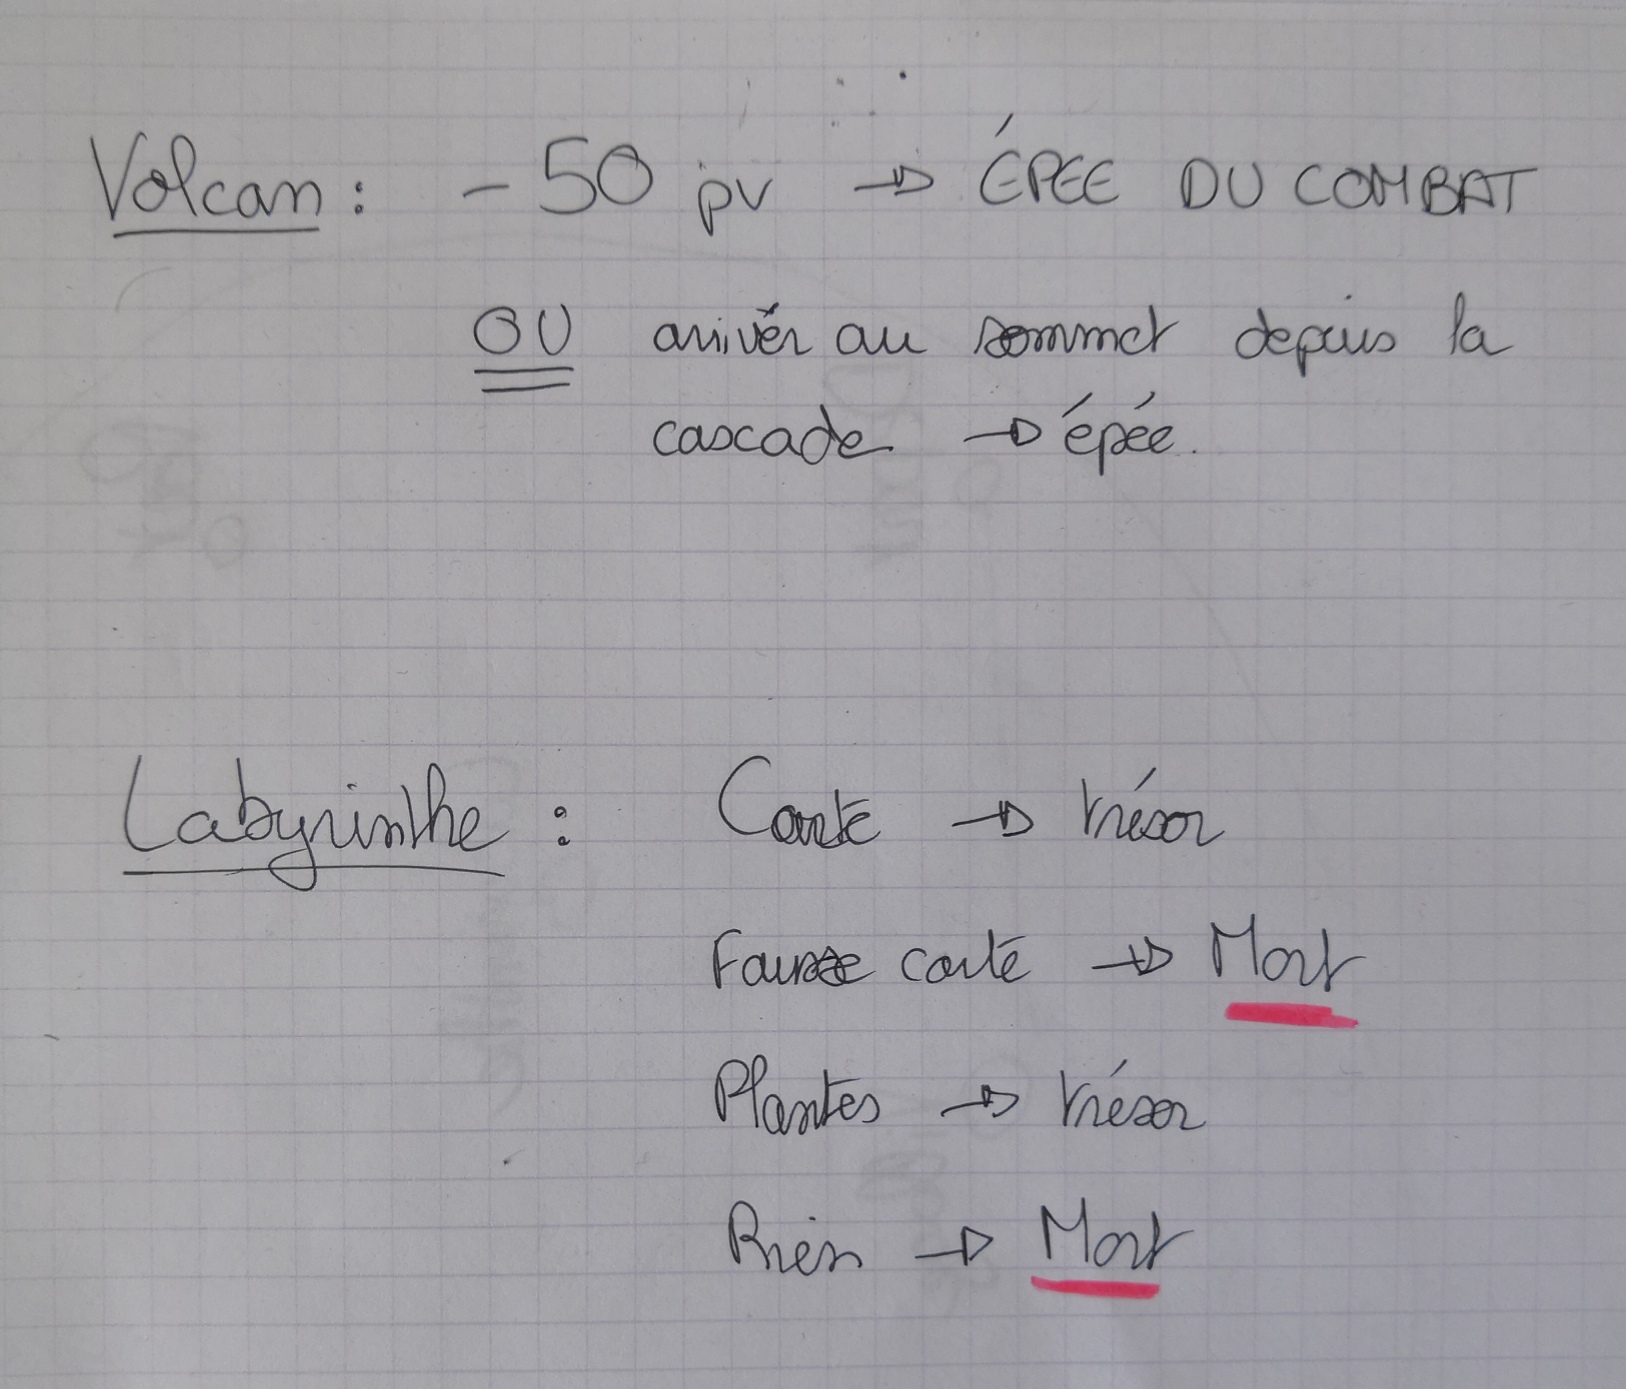 Volcan : - 50 pv → ÉPEE DU COMBAT
OU arrivér au sommet depuis la
cascade → épée.
Labyrinthe : Carte → trésor
Fausse carte → Mort
Plantes → trésor
Rien → Mort